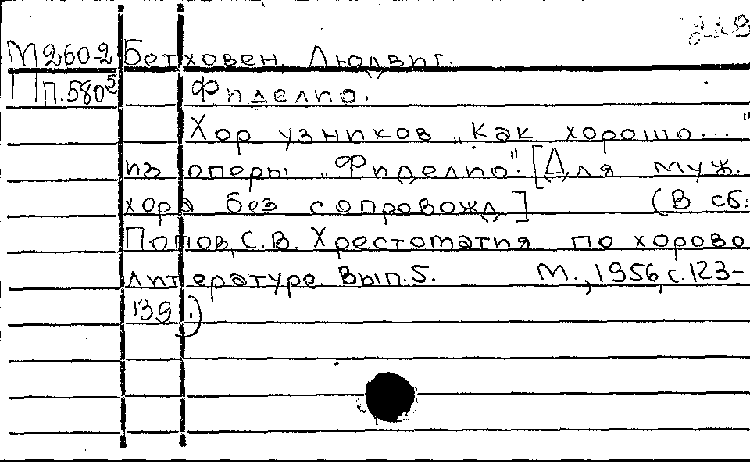 М2602 Бетховен, Людвиг.
П п.580⁵ Фиделио.
Хор узников „Как хорошо..."
из оперы „Фиделио". [Для муж.
хора без сопровожд.] (В сб:
Попов, С.В. Хрестоматия по хорово
литературе. Вып.5. М., 1956, с.123-
139.)